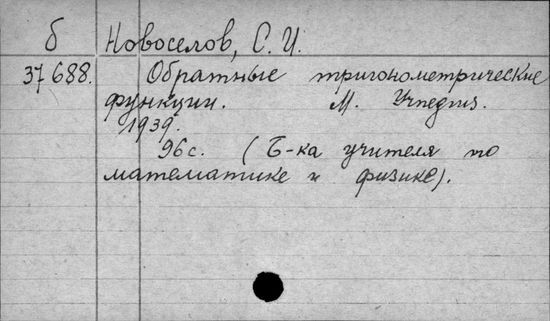 б Новоселов, С. И.
37688. Обратные тригонометрические
функции. М. Учпедгиз.
1939.
96с. (Б-ка учителя по
математике и физике).